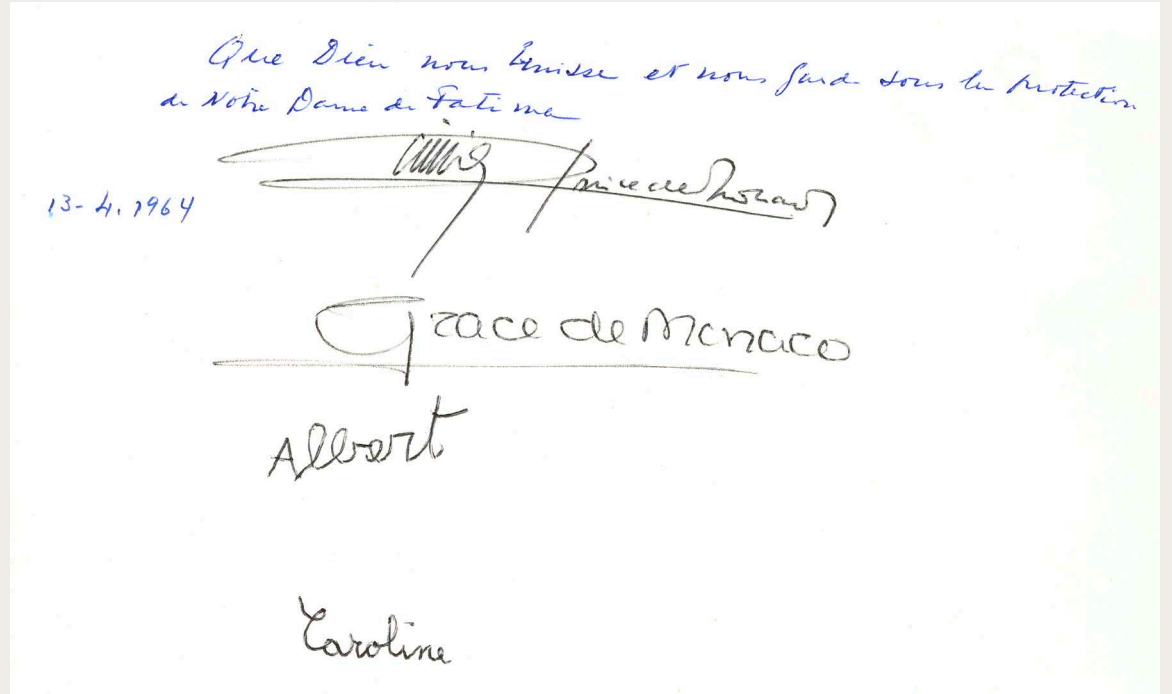 Que Dieu nous bénisse et nous garde sous la protection
de Notre Dame de Fatima
Prince de Monaco
13-4.1964
Grace de Monaco
Albert
Caroline